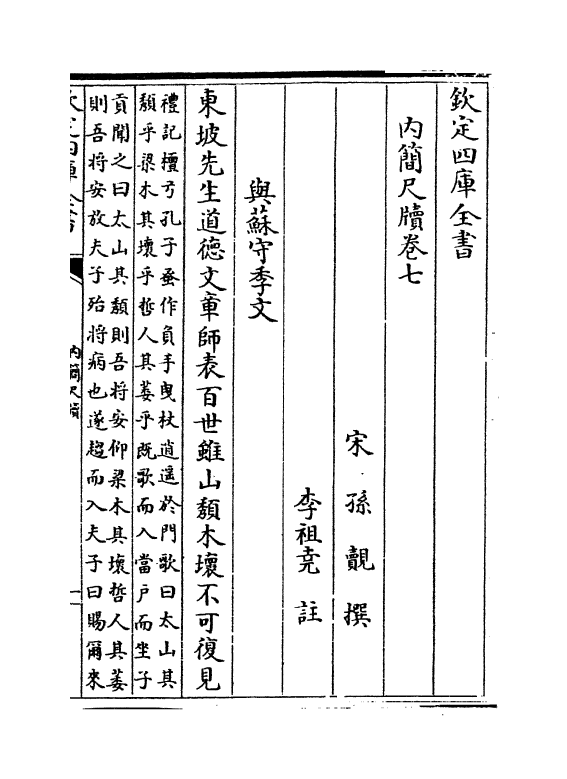 欽定四庫全書
内簡尺牘卷七
宋 孫覿 撰
李祖堯 註
與蘇守季文
東坡先生道德文章師表百世雖山頽木壞不可復見
禮記檀弓孔子蚤作負手曳杖逍遥於門歌曰太山其
頽乎梁木其壞乎哲人其萎乎既歌而入當户而坐子
貢聞之曰太山其頽則吾將安仰梁木其壞哲人其萎
則吾將安放夫子殆將病也遂趨而入夫子曰賜爾來
内簡尺牘
一